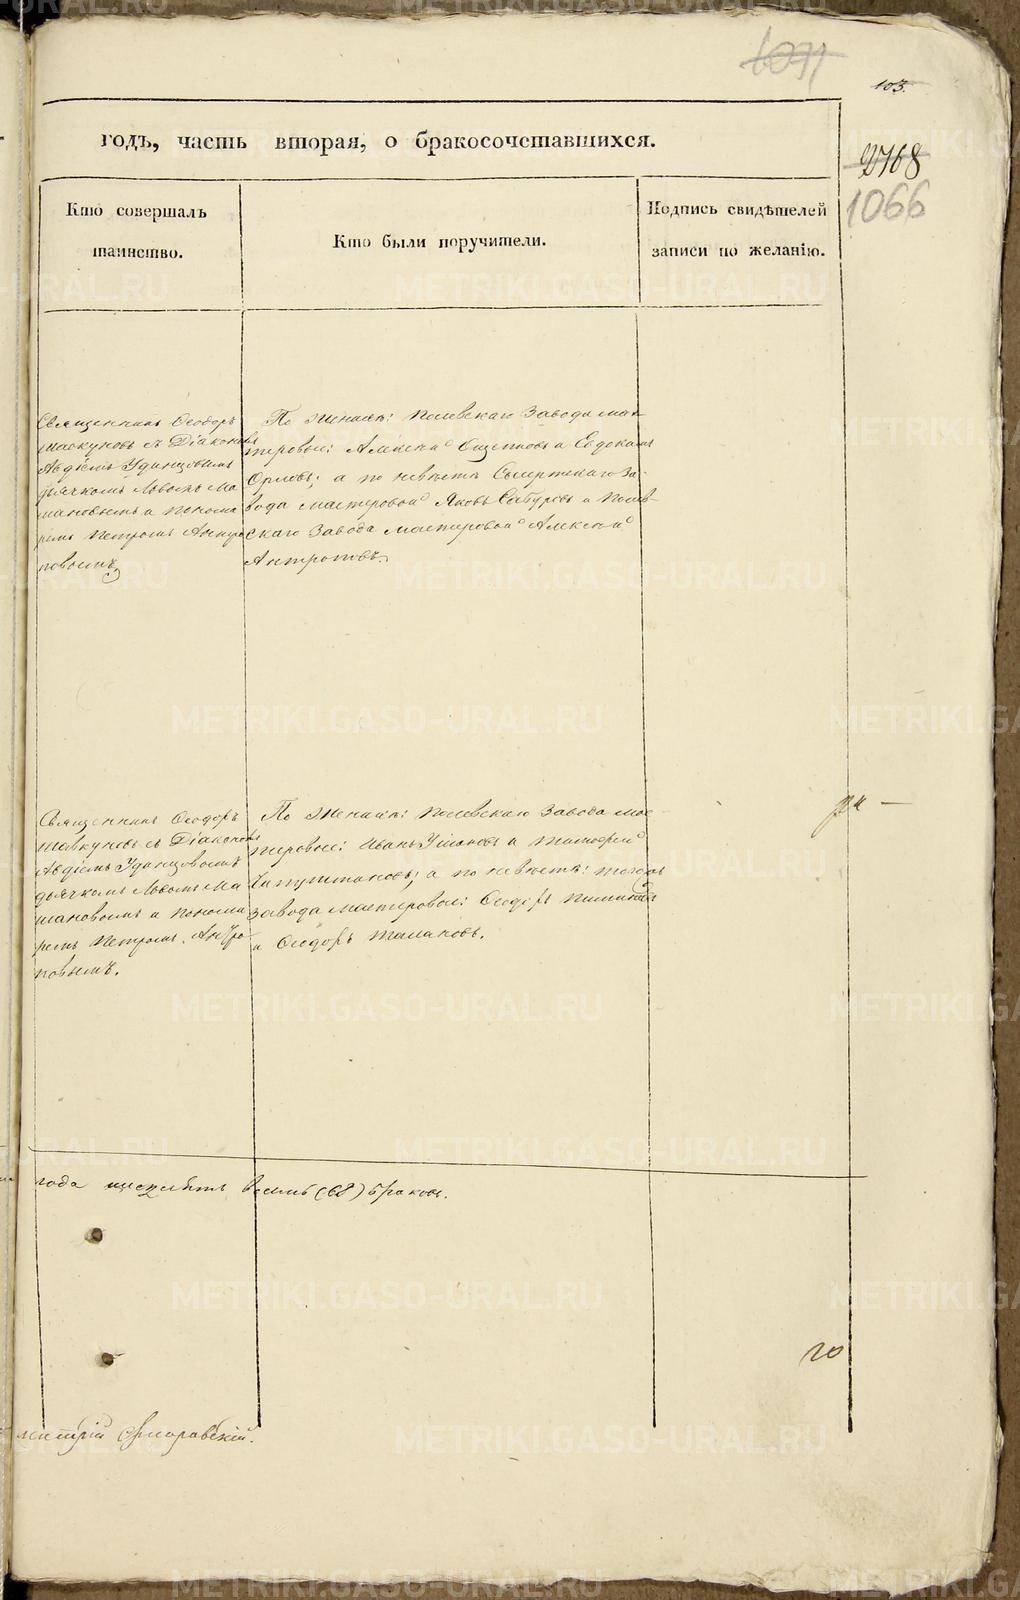 1071
103.
2768
1066
годъ, часть вторая, о бракосочетавшихся.
Кто совершалъ
таинство.
Кто были поручители.
Подпись свидѣтелей
записи по желанію.
Священникъ Ѳеодоръ
съ Діакономъ
Авдіемъ Удинцовымъ
дьячкомъ Львомъ Ма
шановымъ и понома
ремъ Петромъ Антро
повымъ
По женихѣ: Полевскаго завода мас
теровые: Алексѣй и Евдокимъ
Орловъ; а по невѣстѣ Сысертскаго за
вода мастеровой Яковъ Сабуровъ и Полев
скаго завода мастеровой Алексѣй
Антроповъ.
Священникъ Ѳеодоръ
съ Діакономъ
Авдіемъ Удинцовымъ
дьячкомъ Львомъ Ма
шановымъ и понома
ремъ Петромъ Антро
повымъ.
По женихѣ: Полевскаго завода мас
теровые: Иванъ Ушаковъ и Тимофей
а по невѣстѣ: тогожъ
завода мастеровые: Ѳеодоръ
и Ѳеодоръ Талановъ.
года шесдесятъ восемь (68) браковъ.